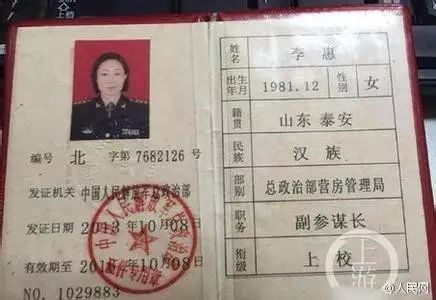 编号 北 字第 7682126 号
发证机关 中国人民解放军总政治部
发证日期 2013 10月08
有效期至 10月08
NO. 1029883
姓名 李惠
出生年月 1981.12 性别 女
籍贯 山东 泰安
民族 汉族
部别 总政治部营房管理局
职务 副参谋长
衔级 上校
证件专用章
上游
@人民网